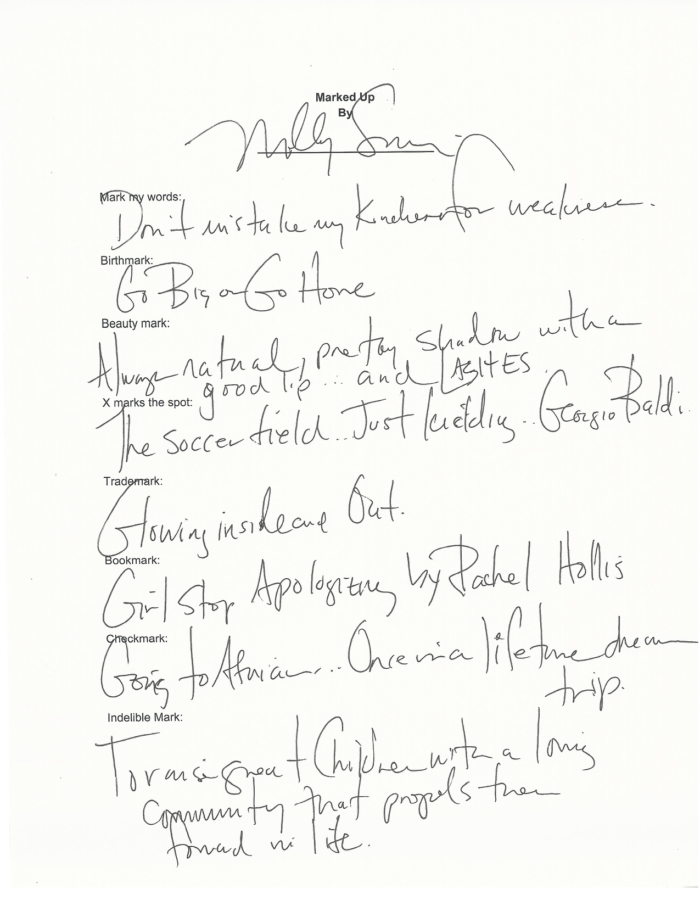 Marked Up
By
Molly
Mark my words:
Don't mistake my Kindness for weakness.
Birthmark:
Go Big or Go Home
Beauty mark:
Always natural, pretty shadow with a
good lip... and LASHES
X marks the spot:
The soccer field... Just kidding... Georgio Baldi.
Trademark:
Glowing inside and Out.
Bookmark:
Girl Stop Apologizing by Rachel Hollis
Checkmark:
Going to Africa.... Once in a lifetime dream
trip.
Indelible Mark:
To raise great Children with a loving
Community that propels them
forward in life.